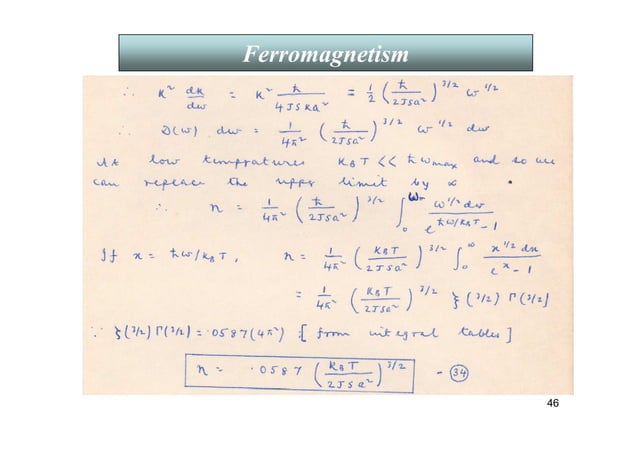 Ferromagnetism
∴ K² dK/dω = K² ħ/4JSKa² = 1/2 (ħ/2JSa²)^3/2 ω^1/2
∴ D(ω) dω = 1/4π² (ħ/2JSa²)^3/2 ω^1/2 dω
At low tempratures K_BT << ħω_max and so we
can replace the upper limit by ∞
∴ n = 1/4π² (ħ/2JSa²)^3/2 ∫₀^∞ ω^1/2 dω / e^ħω/K_BT - 1
If x = ħω/K_BT, n = 1/4π² (K_BT/2JSa²)^3/2 ∫₀^∞ x^1/2 dx / e^x - 1
= 1/4π² (K_BT/2JSa²)^3/2 ξ(3/2) Γ(3/2)
∵ ξ(3/2) Γ(3/2) = .0587(4π²) :[from integral tables]
n = .0587 (K_BT/2JSa²)^3/2 - (34)
46